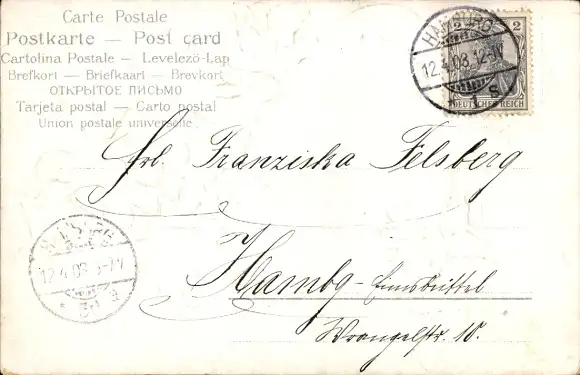 Carte Postale
Postkarte — Post card
Cartolina Postale — Levelező-Lap
Brefkort — Briefkaart — Brevkort
ОТКРЫТОЕ ПИСЬМО
Tarjeta postal — Carto postal
Union postale universelle.
HAMBURG
12.4.03.12-1V
* 1 S.
2 2
DEUTSCHES REICH
Frl. Franziska Felsberg
Hambg-Eimsbüttel
Wrangelstr. 10.
HAMBURG
12.4.03.